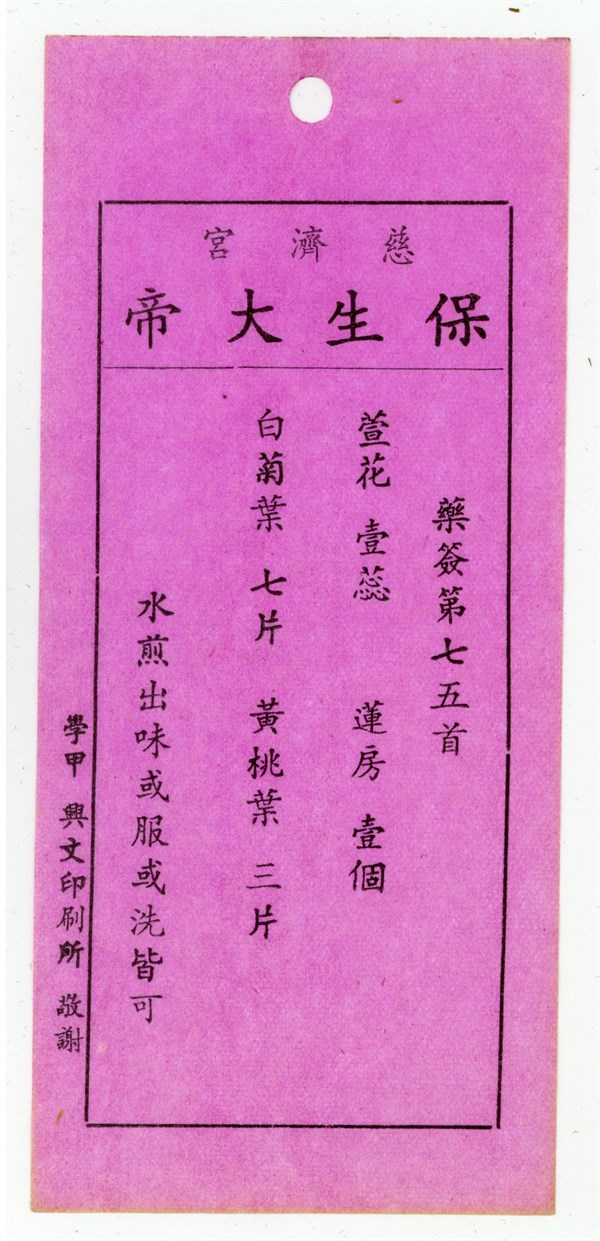 慈濟宮
保生大帝
藥簽第七五首
萱花 壹蕊 蓮房 壹個
白菊葉 七片 黃桃葉 三片
水煎出味或服或洗皆可
學甲 興文印刷所 敬謝